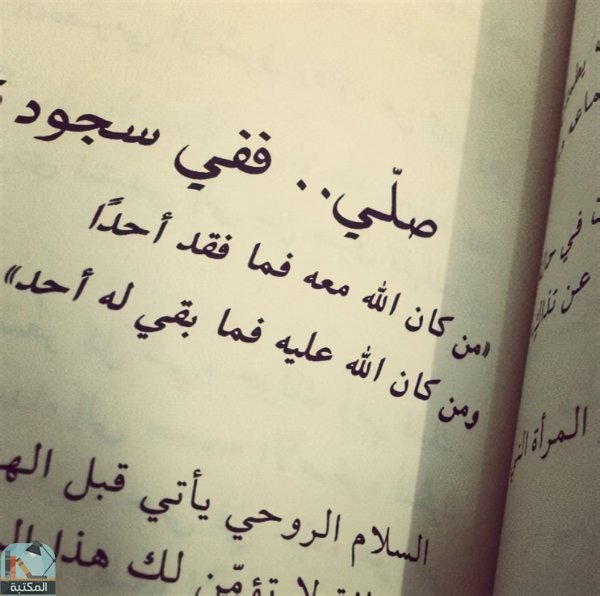 صلّي.. ففي سجود
«من كان الله معه فما فقد أحدًا
ومن كان الله عليه فما بقي له أحد»
السلام الروحي يأتي قبل
لا تؤمّن لك هذا
في
عن
المرأة التي
المكتبة